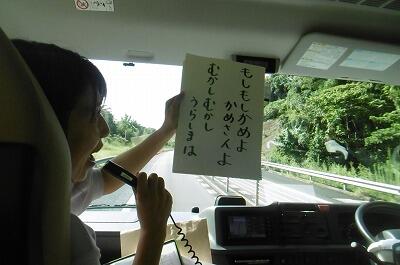 もしもしかめよ
かめさんよ
むかしむかし
うらしまは